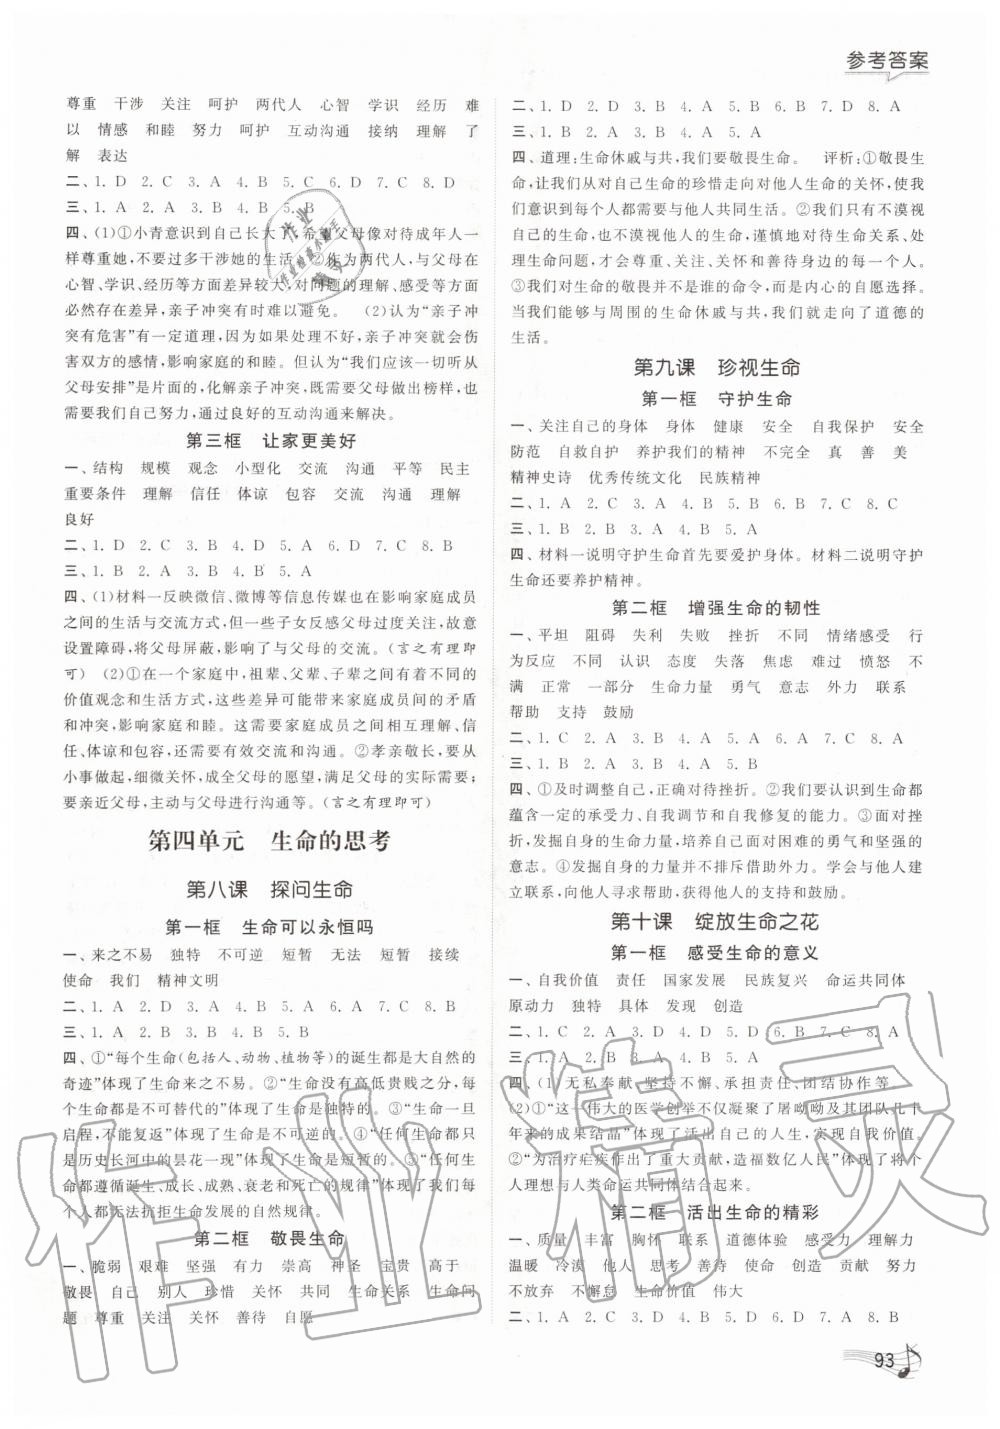 参考答案
尊重 干涉 关注 呵护 两代人 心智 学识 经历 难
以 情感 和睦 努力 呵护 互动沟通 接纳 理解 了
解 表达
二、1. D 2. C 3. A 4. B 5. C 6. D 7. C 8. D
三、1. A 2. A 3. A 4. B 5. B
四、(1)①小青意识到自己长大了,希望父母像对待成年人一
样尊重她,不要过多干涉她的生活。②作为两代人,与父母在
心智、学识、经历等方面差异较大,对问题的理解、感受等方面
必然存在差异,亲子冲突有时难以避免。 (2)认为“亲子冲
突有危害”有一定道理,因为如果处理不好,亲子冲突就会伤
害双方的感情,影响家庭的和睦。但认为“我们应该一切听从
父母安排”是片面的,化解亲子冲突,既需要父母做出榜样,也
需要我们自己努力,通过良好的互动沟通来解决。
第三框 让家更美好
一、结构 规模 观念 小型化 交流 沟通 平等 民主
重要条件 理解 信任 体谅 包容 交流 沟通 理解
良好
二、1. D 2. C 3. B 4. D 5. A 6. D 7. C 8. B
三、1. B 2. B 3. A 4. B 5. A
四、(1)材料一反映微信、微博等信息传媒也在影响家庭成员
之间的生活与交流方式,但一些子女反感父母过度关注,故意
设置障碍,将父母屏蔽,影响了与父母的沟通。(言之有理即
可) (2)①在一个家庭中,祖辈、父辈、子辈之间有着不同的
价值观念和生活方式,这些差异可能带来家庭成员间的矛盾
和冲突,影响家庭和睦。这需要家庭成员之间相互理解、信
任、体谅和包容,还需要有效交流和沟通。②孝亲敬长,要从
小事做起,细微关怀,成全父母的愿望,满足父母的实际需要;
要亲近父母,主动与父母进行沟通等。(言之有理即可)
第四单元 生命的思考
第八课 探问生命
第一框 生命可以永恒吗
一、来之不易 独特 不可逆 短暂 无法 短暂 接续
使命 我们 精神文明
二、1. A 2. D 3. A 4. B 5. A 6. C 7. C 8. B
三、1. A 2. B 3. B 4. A 5. B
四、①“每个生命(包括人、动物、植物等)的诞生都是大自然的
奇迹”体现了生命来之不易。②“生命没有高低贵贱之分,每
个生命都是不可替代的”体现了生命是独特的。③“生命一旦
启程,不能复返”体现了生命是不可逆的。④“任何生命都只
是历史长河中的昙花一现”体现了生命是短暂的。⑤“任何生
命都遵循诞生、成长、成熟、衰老和死亡的规律”体现了我们每
个人都无法抗拒生命发展的自然规律。
第二框 敬畏生命
一、脆弱 艰难 坚强 有力 崇高 神圣 宝贵 高于
敬畏 自己 别人 珍惜 关怀 共同 生命关系 生命问
题 尊重 关注 关怀 善待 自愿
二、1. D 2. D 3. B 4. A 5. B 6. B 7. D 8. A
三、1. B 2. A 3. B 4. B 5. A
四、道理:生命休戚与共,我们要敬畏生命。 评析:①敬畏生
命,让我们从对自己生命的珍惜走向对他人生命的关怀,使我
们意识到每个人都需要与他人共同生活。②我们只有不漠视
自己的生命,也不漠视他人的生命,谨慎地对待生命关系、处
理生命问题,才会尊重、关注、关怀和善待身边的每一个人。
③我们对生命的敬畏并不是谁的命令,而是内心的自愿选择。
当我们能够与周围的生命休戚与共,我们就走向了道德的
生活。
第九课 珍视生命
第一框 守护生命
一、关注自己的身体 身体 健康 安全 自我保护 安全
防范 自救自护 养护我们的精神 不完全 真 善 美
精神史诗 优秀传统文化 民族精神
二、1. A 2. C 3. A 4. B 5. B 6. B 7. C 8. C
三、1. B 2. B 3. A 4. B 5. A
四、材料一说明守护生命首先要爱护身体。材料二说明守护
生命还要养护精神。
第二框 增强生命的韧性
一、平坦 阻碍 失利 失败 挫折 不同 情绪感受 行
为反应 不同 认识 态度 失落 焦虑 难过 愤怒 不
满 正常 一部分 生命力量 勇气 意志 外力 联系
帮助 支持 鼓励
二、1. C 2. A 3. B 4. C 5. D 6. B 7. C 8. A
三、1. B 2. A 3. B 4. A 5. B
四、①及时调整自己,正确对待挫折。②发现我们的生命都
蕴含一定的承受力、自我调节和自我修复的能力。③面对挫
折,发掘自身的生命力量,培养自己面对困难的勇气和坚强的
意志。④发掘自身的生命力量并不排斥借助外力。学会与他人
建立联系,向他人寻求帮助,获得他人的支持和鼓励。
第十课 绽放生命之花
第一框 感受生命的意义
一、自我价值 责任 国家发展 民族复兴 命运共同体
原动力 独特 具体 发现 创造
二、1. C 2. A 3. D 4. D 5. D 6. B 7. C 8. A
三、1. A 2. B 3. A 4. B 5. A
四、(1)无私奉献、坚持不懈、承担责任、团结协作等。
(2)①“这一伟大的医学创举不仅凝聚了屠呦呦及其团队几十
年来的成果结晶”体现了活出自己的人生,实现自我价值。
②“为治疗疟疾作出了重大贡献,造福数亿人民”体现了将个
人理想与人类命运共同体结合起来。
第二框 活出生命的精彩
一、质量 丰富 胸怀 联系 道德体验 感受力 理解力
温暖 冷漠 他人 思考 善待 使命 创造 贡献 努力
不放弃 不懈怠 生命价值 伟大
二、1. B 2. B 3. A 4. D 5. D 6. D 7. A 8. B
93
作业精灵